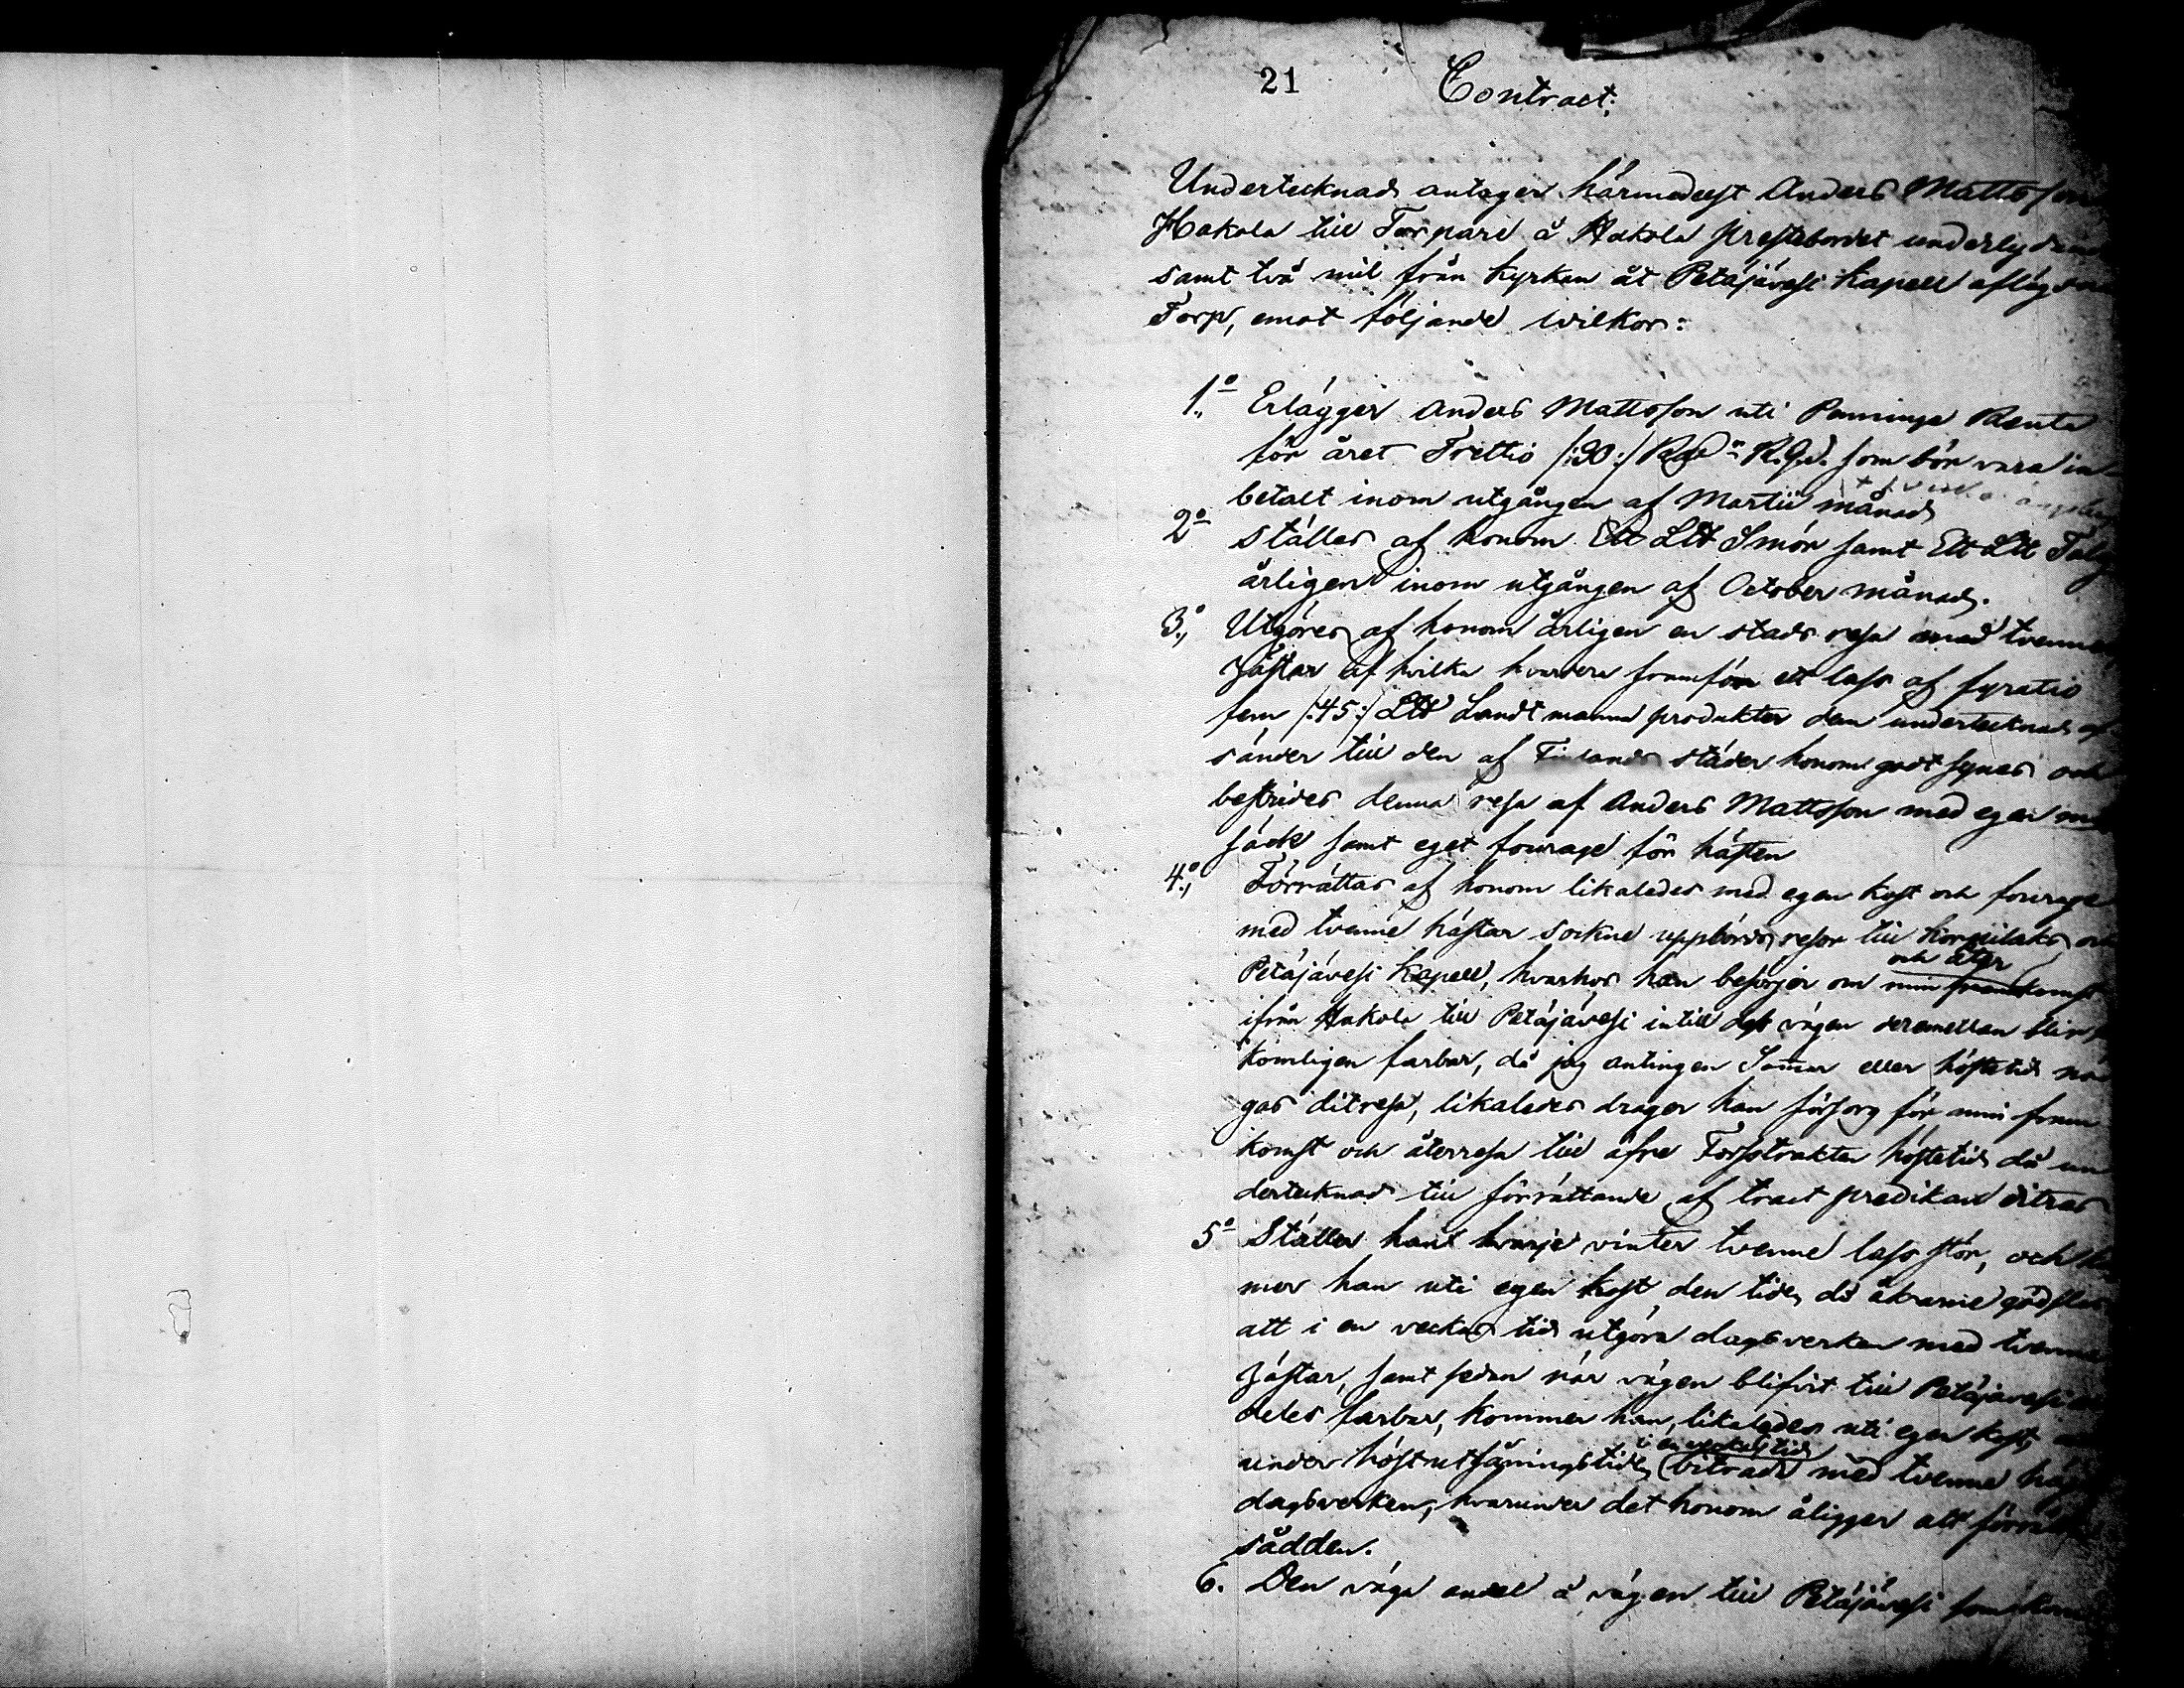 21
Contract;
Undertecknad antager härmedelst Anders Mattsson
Hakola till Torpare å Hakola prestebordet underlydande
samt två mil från kyrkan åt Petäjävesi Kapell aflägsna
Torp, emot följande wilkor:
1:o Erlägger Anders Mattsson uti Penninge Ranta
för året Trettio /:30:/ som bör vara in
betalt inom utgången af Martii månad
2:o Ställes af honom Ett L℔ Smör samt Ett L℔ Talg
årligen inom utgången af October månad.
3:o Utgöres af honom årligen en stads resa med tvenne
hästar af hvilka hvardera framför ett lass af fyratio
fem /:45:/ L℔ Landtmanna produkter dem undertecknad af
sänder till den af Finlands städer honom godt synes och
bestrides denna resa af Anders Mattsson med egen
säck samt eget fourage för hästen
4:o Förrättas af honom likaledes med egen kost och fourage
med tvenne hästar sockne uppbörds resor till Korpilaks och
Petäjävesi Kapell, hvarhos han besörjer om min framkomst
och åter
ifrån Hakola till Petäjävesi intill dess vägen deremellan blir
komligen farbar, då jag antingen Sommar eller hösttid
gas ditresa, likaledes drager han försorg för min fram
komst och återresa till öfre Forsstrakten hösttid då un
dertecknad till förrättande af tract predikan ditres
5:o Ställer han hvarje vinter tvenne lass stör, och
mer han uti egen kost den tiden då åkarne gödslas
att i en veckas tid utgöra dagsverken med tvenne
hästar, samt sedan när vägen blifvit till Petäjävesi
deles farbar, kommer han, likaledes uti egen kost,
i en veckas tid
under höstutsåningstiden biträda med tvenne
dagsverken, hvarunder det honom åligger att förrätta
sådden.
6. Den väga andel å vägen till Petäjävesi som